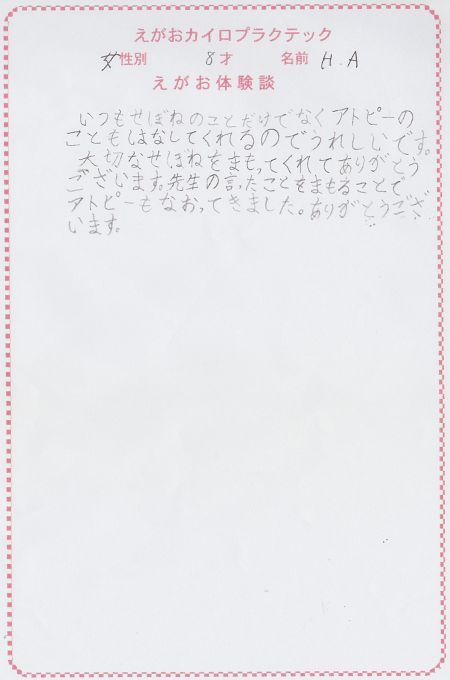 えがおカイロプラクテック
女性別 8才 名前 H.A
えがお体験談
いつもせぼねのことだけでなくアトピーの
こともはなしてくれるのでうれしいです。
大切なせぼねをまもってくれてありがとう
ございます。先生の言ったことをまもることで
アトピーもなおってきました。ありがとうござ
います。